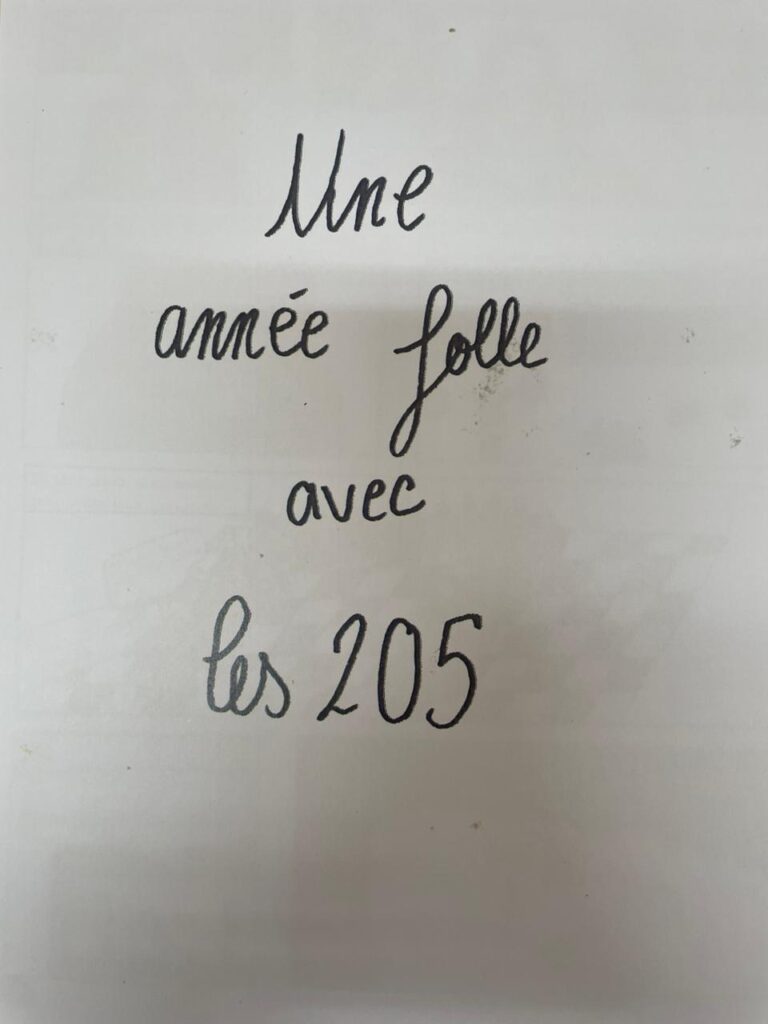 Une
année folle
avec
les 205